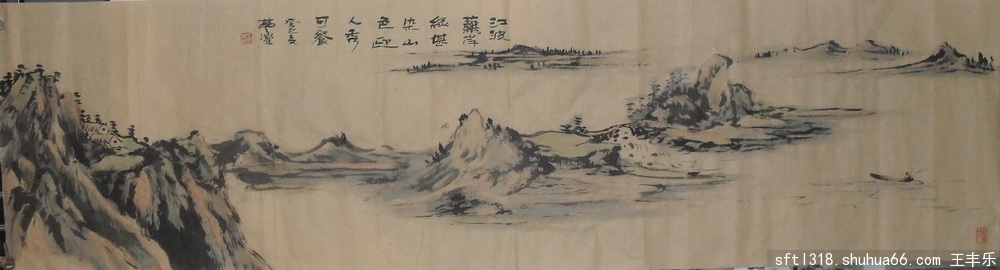 江波
蘸岸
綠堪
染山
色迎
人秀
可餐
癸巳夏
sftl318.shuhua66.com 王丰乐